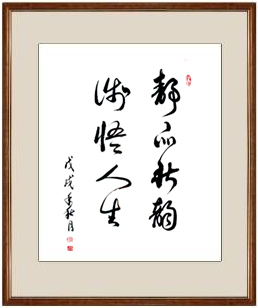 静品秋韵
悟人生
戊戌年秋月